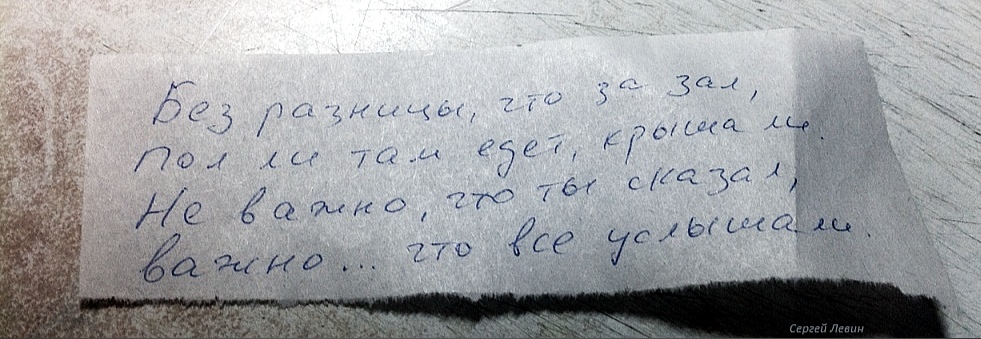 Без разницы, что за зал,
Пол ли там едет, крыша ли.
Не важно, что ты сказал,
важно... что все услышали.
Сергей Левин